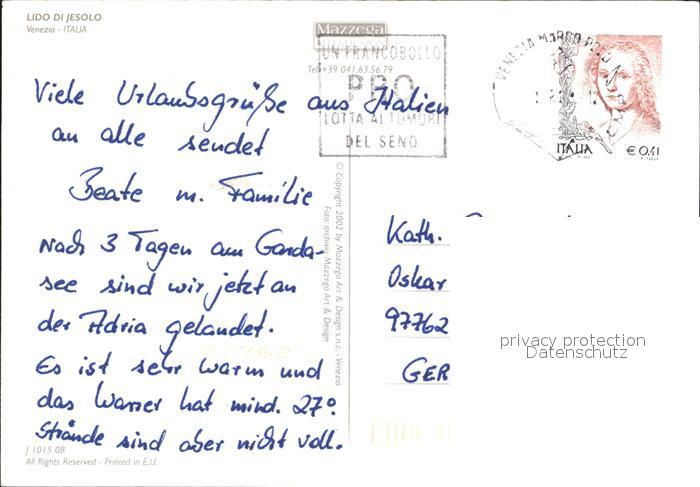 LIDO DI JESOLO
Venezia - ITALIA
Mazzega
Tel +39 041.63.56.79
UN FRANCOBOLLO
PRO
LOTTA AI TUMORI
DEL SENO
VENEZIA MARCO POLO
ITALIA
€ 0,41
Viele Urlaubsgrüße aus Italien
an alle sendet
Beate m. Familie
Nach 3 Tagen am Garda-
see sind wir jetzt an
der Adria gelandet.
Es ist sehr warm und
das Wasser hat mind. 27°.
Strände sind aber nicht voll.
© Copyright 2002 by Mazzega Art & Design s.n.c. - Venezia
Foto: archivio Mazzega Art & Design
Kath.
Oskar
97762
GER
privacy protection
Datenschutz
97762
J 1015 08
All Rights Reserved - Printed in E.U.